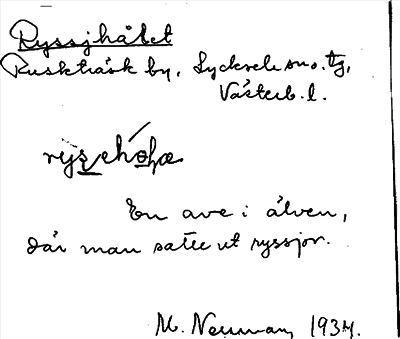 Ryssjhålet
Ruskträsk by, Lycksele sn o. tg,
Västerb. l.
En ave i älven,
där man satte ut ryssjor.
M. Neuman, 1934.